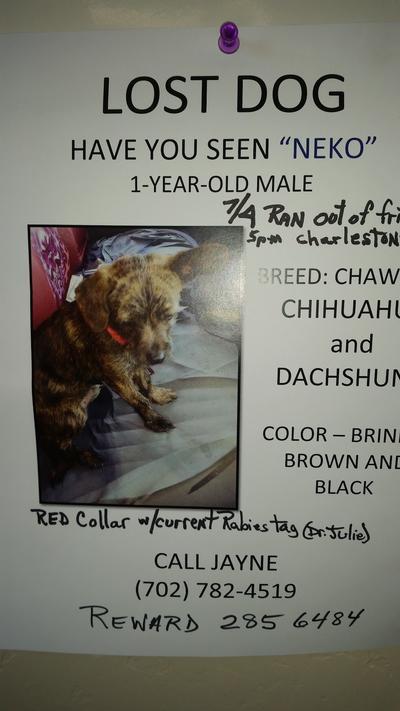 LOST DOG
HAVE YOU SEEN “NEKO”
1-YEAR-OLD MALE
7/4 RAN out of fri
5pm charleston
BREED: CHAW
CHIHUAHU
and
DACHSHUN
COLOR – BRIN
BROWN AND
BLACK
RED Collar w/current Rabies tag (Dr. Julie)
CALL JAYNE
(702) 782-4519
REWARD 285 6484